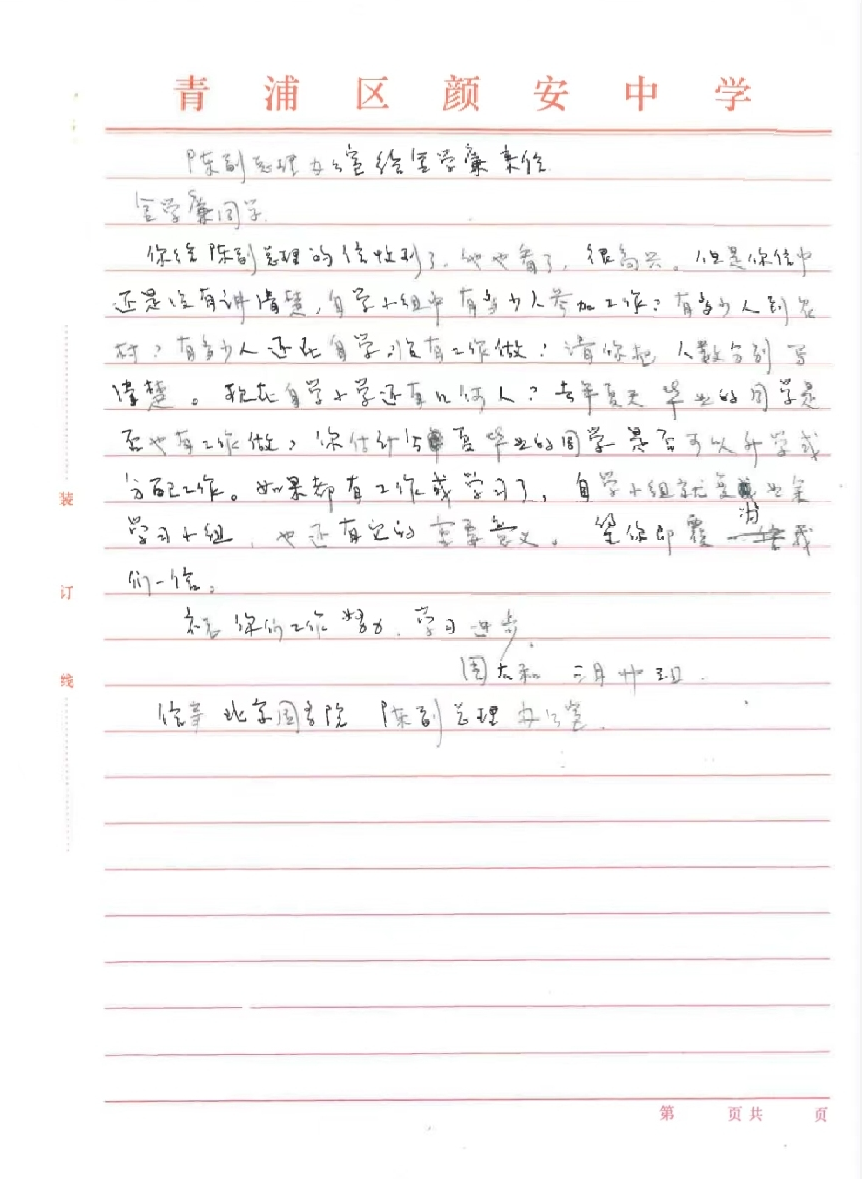 青浦区颜安中学
陈副总理办公室给金学廉来信
金学廉同学
你给陈副总理的信收到了，他也看了，很高兴。但是你信中
还是没有讲清楚，自学小组中有多少人参加工作？有多少人到农
村？有多少人还在自学，没有工作做？请你把人数分别写
清楚。现在自学小学还有几何人？去年夏天毕业的同学是
否也有工作做？你估计今夏毕业的同学是否可以升学或
分配工作。如果都有工作或学习了，自学小组就变业余
学习小组，也还有它的重要意义。望你即覆我
们一信。
祝你们工作努力、学习进步
周太和 三月廿五日.
信寄北京国务院 陈副总理办公室.
装
订
线
第 页共 页